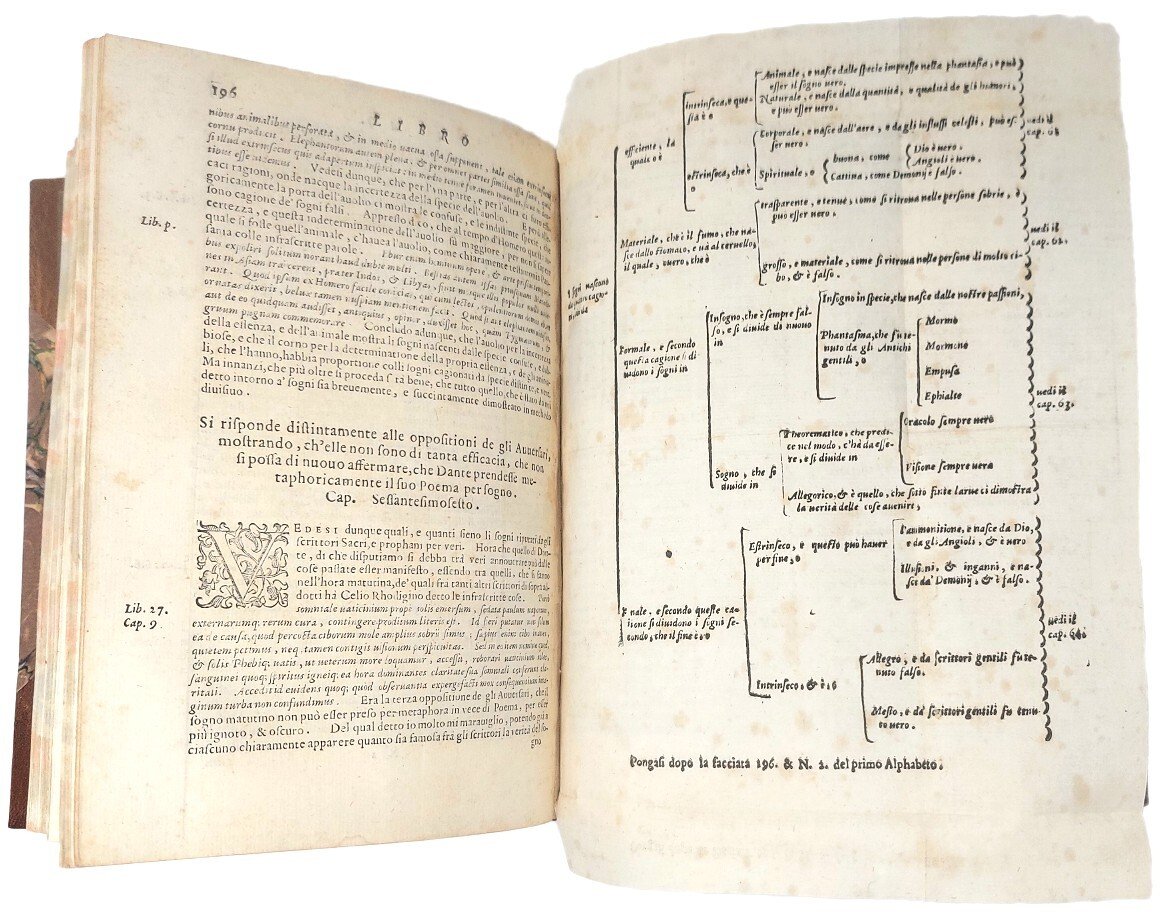 196
LIBRO
nibus animalibus perforata, & in medio vacua esse
cornu producit. Elephantorum autem plena, & per omnes partes similia esse
si illud extrinsecus quis adaperiat inspiciet, in medio
tibus esse Vedeti dunque, che per l'una parte, e per l'altra ci
caci ragioni, onde nacque la incertezza della specie dell'auolio. E però
goricamente la porta dell'auolio ci mostra le confuse, e le indistinte specie, che
sono cagione de' sogni falsi. Appresso dico, che al tempo d'Homero questa
certezza, e questa indeterminatione dell'auolio fù maggiore, per non si sapere
quale si fosse quell'animale, c'hauea l'auolio, come chiaramente
sania colle infrascritte parole.
Lib. p.
bus expoliri solitum norant haud dubie multi.
nes in Asiam
rant. Quod ipsum ex Homero facile conicias, qui cum lectos,
ornatas dixerit, beluae tamen nuspiam mentionem facit. Quod si aut
aut de eo quidquam audisset, antiquius, opinor, duxisset hoc, quam Pygmaeorum, &
gruum pugnam commemorare. Concludo adunque, che l'auolio per la incertezza
della essenza, e dell'animale mostra li sogni nascenti dalle specie confuse, e
biose, e che il corno per la determinatione della propria essenza, e de gli
li, che l'hanno, habbia proportione colli sogni cagionati da specie distinte, e
Ma innanzi, che più oltre si proceda sarà bene, che tutto quello, che è stato da noi
detto intorno a' sogni sia breuemente, e succintamente dimostrato in methodo
diuisiuo.
Si risponde distintamente alle oppositioni de gli Auuersari,
mostrando, ch'elle non sono di tanta efficacia, che non
si possa di nuouo affermare, che Dante prendesse me-
taphoricamente il suo Poema per sogno.
Cap. Sessantesimosesto.
VEDESI dunque quali, e quanti sieno li sogni riputati dagli
scrittori Sacri, e prophani per veri. Hora che quello di Dan-
te, di che disputiamo si debba trà veri annouerare può dalle
cose passate esser manifesto, essendo trà quelli, che si fanno
nell'hora matutina, de' quali fra tanti altri scrittori di sopra ad-
dotti ha Celio Rhodigino detto le infrascritte cose.
Lib. 27.
Cap. 9
somniale vaticinium prope solis emersum, sedata paulum
externarumq; rerum cura, contingere proditum literis est. Id fieri putant non
ea de causa, quod percocta ciborum mole amplius sobrii simus: sapius enim cibo
quietem petimus, neq; tamen contigit visionum perspicuitas. Sed in eum
& solis Phebiq; vatis, ut veterum more loquamur, accessu, roborari
sanguinei quoq; spiritus igneiq; ea hora dominantes claritate sua somniali
ritati. Accedit id euidens quoq; quod obseruantia expergefacti mox consequentium
ginum turba non confundimus. Era la terza oppositione de gli Auuersari, che il
sogno matutino non può esser preso per metaphora in vece di Poema, per esser
più ignoto, & oscuro. Del qual detto io molto mi marauiglio, potendo già
ciascuno chiaramente apparere quanto sia famosa frà gli scrittori la verità del so-
gno
I Sogni nascono
efficiente, la
qual o è
intrinseca, e que-
sta è o
Animale, e nasce dalle specie impresse nella phantasia, e può
esser il sogno uero.
Naturale, e nasce dalla quantità, e qualità de gli humori,
e può esser uero.
estrinseca, che è
o
Corporale, e nasce dall'aere, e da gli influssi celesti, può es-
ser uero.
Spirituale, o
buona, come
Dio è uero.
Angioli è uero.
Cattiua, come Demonij è falso.
uedi il
cap. 68
Materiale, che è il fumo, che na-
sce dallo stomaco, e uà al ceruello,
il quale, ouero, che è
trasparente, e tenue, come si ritroua nelle persone sobrie, e
può esser uero.
grosso, e materiale, come si ritroua nelle persone di molto ci-
bo, & è falso.
uedi il
cap. 62.
Formale, e secondo
questa cagione si di-
uidono i sogni in
Insogno, che è sempre fal-
so, e si diuide di nuouo
in
Insogno in specie, che nasce dalle nostre passioni,
Phantasma, che fù te-
nuto da gli Antichi
gentili, o
Mormo
Mormone
Empusa
Ephialte
Sogno, che si
diuide in
Theorematico, che predi-
ce nel modo, c'hà da esse-
re, e si diuide in
Oracolo sempre uero
Visione sempre uera
Allegorico, & è quello, che sotto finte larue ci dimostra
la uerità delle cose auenire,
uedi il
cap. 63.
Finale, e secondo queste ca-
gione si diuidono i sogni se-
condo, che il fine è, o
Estrinseco, e questo può hauer
per fine, o
l'ammonitione, e nasce da Dio,
e da gli Angioli, & è uero
Illusioni, & inganni, e na-
sce da' Demonij, & è falso.
Intrinseco, & è, o
Allegro, e da scrittori gentili fù te-
nuto falso.
Mesto, e da scrittori gentili fù tenu-
to uero.
uedi il
cap. 64.
Pongasi dopò la facciata 196. & N. 2. del primo Alphabeto.